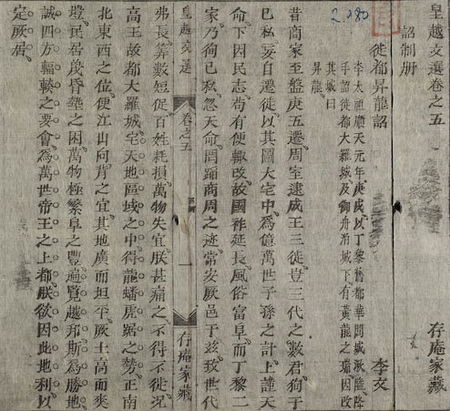 皇越文選卷之五 存庵家藏
詔制册
徙都昇龍詔 李文
李太祖順天元年庚戌以丁黎舊都華閭城湫隘降
手詔徙都大羅城及御舟泊城下有黃龍之瑞因改
其城曰
昇龍
昔商家至盤庚五遷周室逮成王三徙豈三代之數君徇于
己私妄自遷徙以其圖大宅中爲億萬世子孫之計上謹天
命下因民志苟有便輒改故國祚延長風俗富阜而丁黎二
家乃徇己私忽天命罔蹈商周之迹常安厥邑于兹致世代
皇越文選 卷之五 一 存庵家藏
弗長算數短促百姓耗損萬物失宜朕甚痛之不得不徙況
高王故都大羅城宅天地區域之中得龍蟠虎踞之勢正南
北東西之位便江山向背之宜其地廣而坦平厥土高而爽
塏民居蔑昏墊之困萬物極繁阜之豐遍覽越邦斯爲勝地
誠四方輻輳之要會爲萬世帝王之上都朕欲因此地利以
定厥居